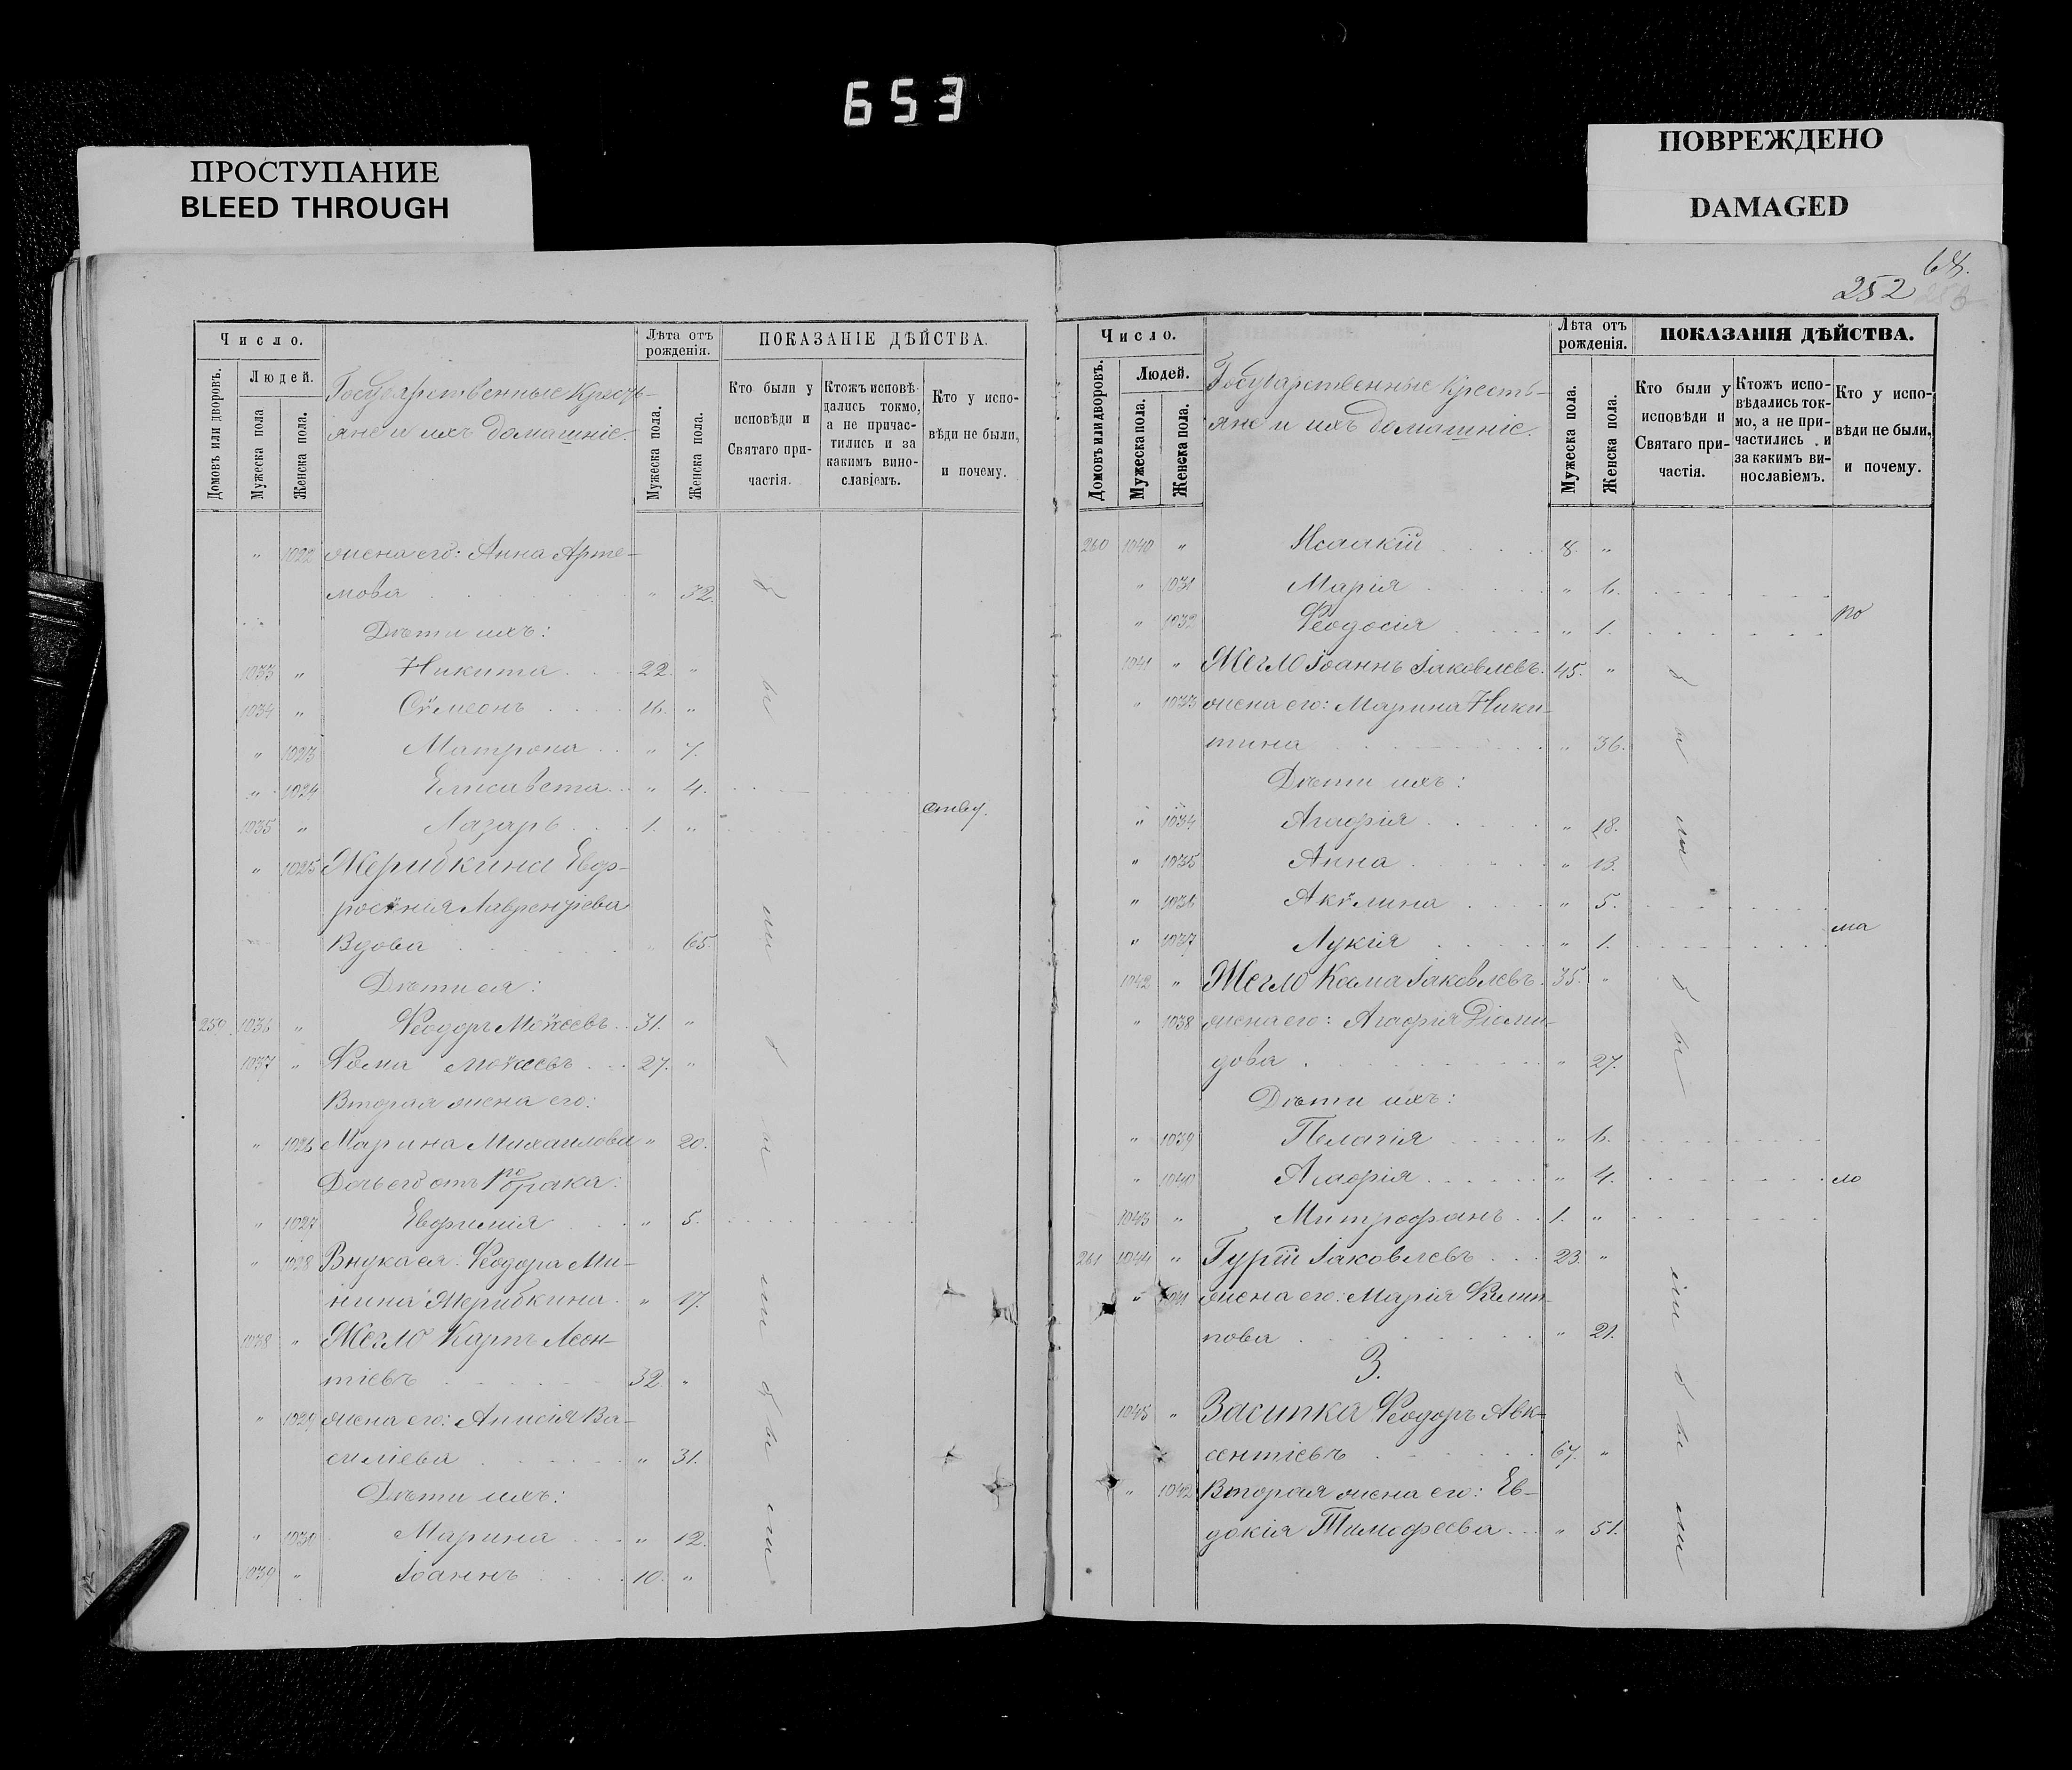 653
ПРОСТУПАНИЕ
BLEED THROUGH
ПОВРЕЖДЕНО
DAMAGED
Число.
Людей.
Домовъ или дворовъ.
Мужеска пола
Женска пола.
Государственные Кресть-
яне и ихъ домашніе.
Лѣта отъ рожденія.
Мужеска пола.
Женска пола.
ПОКАЗАНІЕ ДѢЙСТВА.
Кто были у исповѣди и Святаго при-частія.
Ктожъ исповѣ-дались токмо, а не причас-тились и за какимъ вино-славіемъ.
Кто у испо-вѣди не были, и почему.
" 1022 жена его: Анна Арте-
мова " 32.
Дѣти ихъ:
1033 " Никита 22. "
1034 " Сѵмеонъ 16. "
" 1023 Матрона " 7.
" 1024 Елисавета " 4.
ству.
1035 " Лазарь 1. "
" 1025 Жерибкина Евф-
росинія Лаврентіева
Вдова " 65.
Дѣти ея:
259 1036 " Ѳеодоръ Мокіевъ 31. "
1037 " Ѳома Мокіевъ 27. "
Вторая жена его:
" 1026 Марина Михаилова " 20.
Дочь его отъ 1го брака:
" 1027 Евфимія " 5.
" 1028 Внука ея: Ѳеодора Ми-
нина Жерибкина " 17.
1038 " Жегло Карпъ Леон-
тіевъ 32. "
" 1029 жена его: Анисія Ва-
силіева " 31.
Дѣти ихъ:
" 1030 Марина " 12.
1039 " Іоаннъ 10. "
были
были
были
68.
252
Число.
Людей.
Домовъ или дворовъ.
Мужеска пола.
Женска пола.
Государственные Кресть-
яне и ихъ домашніе.
Лѣта отъ рожденія.
Мужеска пола.
Женска пола.
ПОКАЗАНІЯ ДѢЙСТВА.
Кто были у исповѣди и Святаго при-частія.
Ктожъ испо-вѣдались ток-мо, а не при-частились и за какимъ ви-нославіемъ.
Кто у испо-вѣди не были, и почему.
260 1040 " Исаакій 8. "
" 1031 Марія " 6.
по
" 1032 Ѳеодосія " 1.
1041 " Жегло Іоаннъ Іаковлевъ. 45. "
" 1033 жена его: Марина Ники-
тина " 36.
Дѣти ихъ:
" 1034 Агафія " 18.
" 1035 Анна " 13.
" 1036 Акѵлина " 5.
ма
" 1037 Лукія " 1.
1042 " Жегло Косма Іаковлевъ. 35. "
" 1038 жена его: Агафія Діоми-
дова " 27.
Дѣти ихъ:
" 1039 Пелагія " 6.
" 1040 Агафія " 4.
ло
1043 " Митрофанъ 1. "
261 1044 " Гурій Іаковлевъ 23. "
" 1041 жена его: Марія Филип-
пова " 21.
З.
1045 " Засипка Ѳеодоръ Авк-
сентіевъ 67. "
" 1042 Вторая жена его: Ев-
докія Тимофеева " 51.
были
были
были